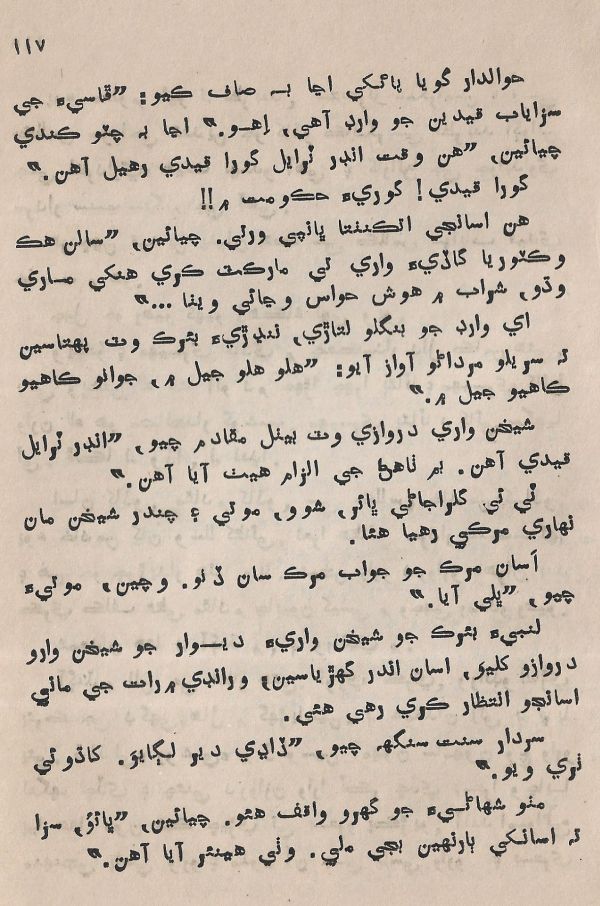 ١١٧
حوالدار گويا پاڻکي اڃا بہ صاف ڪيو: ”ڦاسيءَ جي
سزاياب قيدين جو وارڊ آهي، اِهو.“ اڃا بہ چٽو ڪندي
چيائين، ”هن وقت اندر ٽرايل گورا قيدي رهيل آهن.“
گورا قيدي! گوريءَ حڪومت ۾!!
هن اسانجي اتڪنٺتا ڀانپي ورتي. چيائين، ”سالن هڪ
وڪٽوريا گاڏيءَ واري ئي مارڪٽ ڪري هنکي مساري
وڌو، شراب ۾ هوش حواس وڃائي ويٺا...“
اي وارڊ جو بنگلو لتاڙي، ننڍڙيءَ بئرڪ وٽ پهتاسين
تہ سريلو مرداڻو آواز آيو: ”هلو هلو جيل ۾، جوانو ڪاهيو
ڪاهيو جيل ۾.“
شيخن واري دروازي وٽ بيٺل مقادم چيو، ”اندر ٽرايل
قيدي آهن. بم ٺاهڻ جي الزام هيٺ آيا آهن.“
ٽي ئي گلراجاڻي ڀائر، شوو، موتي ۽ چندر شيخن مان
نهاري مرڪي رهيا هئا.
اَسان مرڪ جو جواب مرڪ سان ڏنو. وڃين، موتيءَ
چيو، ”ڀلي آيا.“
لنبيءَ بئرڪ جو شيخن واريءَ ديوار جو شيخن وارو
دروازو کليو، اسان اندر گهڙياسين، ورانڊي ۾ رات جي ماني
اسانجو انتظار ڪري رهي هئي.
سردار سنت سنگهہ چيو، ”ڏاڍي دير لڳايوَ. کاڌو ئي
ٺري ويو.“
منو شهاڻيءَ جو گهرو واقف هئو. چيائين، ”ڀائو، سزا
تہ اسانکي ٻارنهين بجي ملي. وٺي هينئر آيا آهن.“